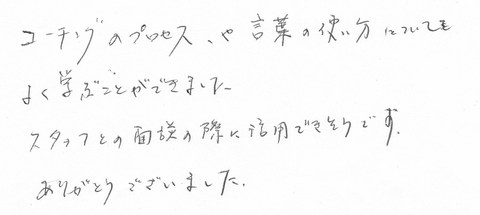 コーチングのプロセス、や言葉の使い方についても
よく学ぶことができました
スタッフとの面談の際に活用できそうです。
ありがとうございました。